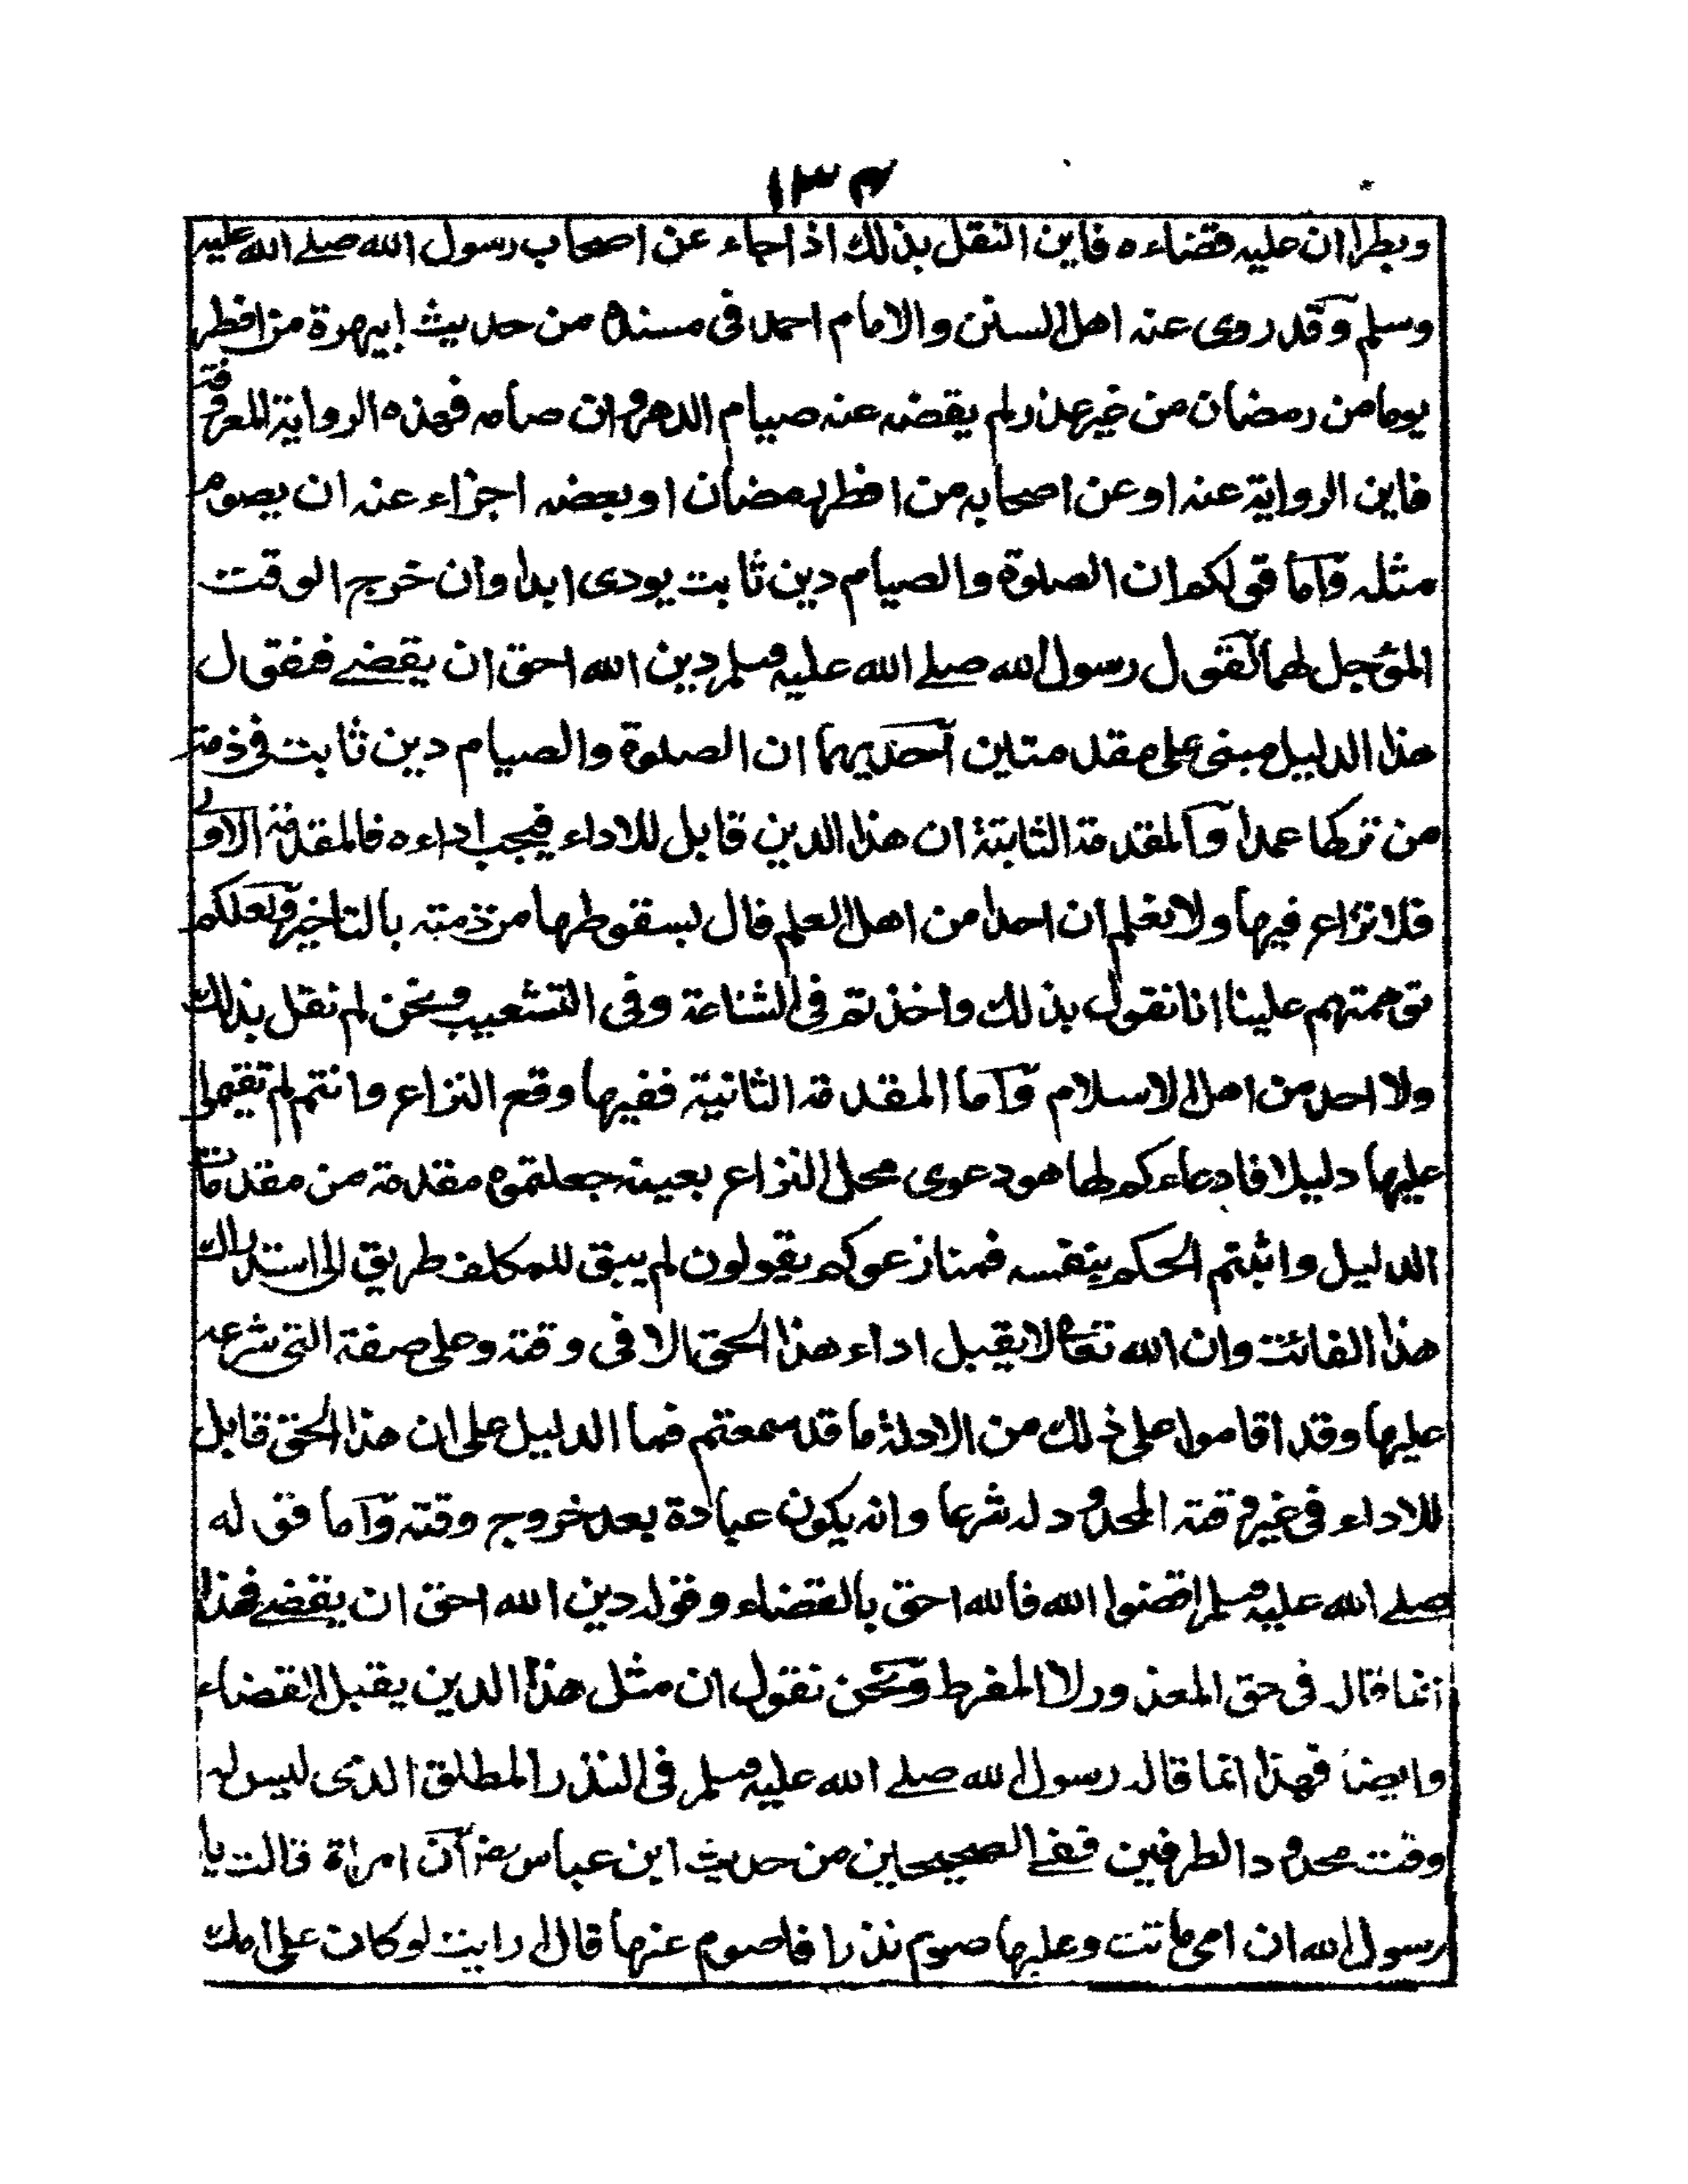 ١٣٤
وبطرا ان عليه قضاءه فاين النقل بذلك اذا جاء عن اصحاب رسول الله صلے الله عليه
وسلم وقد روى عنه اهل السنن والامام احمد فى مسنده من حديث ابيهرة من افطر
يوما من رمضان من غير عذر لم يقضه عنه صيام الدهر وان صامه فهذه الرواية المعروفة
فاين الرواية عنه او عن اصحابه من افطر رمضان او بعضه اجزاء عنه ان يصوم
مثله وآما قولكم ان الصلوة والصيام دين ثابت يودى ابدا وان خرج الوقت
المؤجل لهما لقول رسول الله صلے الله عليه وسلم دين الله احق ان يقضے فنقول
هذا الدليل مبنى على مقدمتين آحديهما ان الصلوة والصيام دين ثابت فى ذمة
من تركها عمدا وآلمقدمة الثابتة ان هذا الدين قابل للاداء فيجب اداءه فالمقدمة الاولى
فلا نزاع فيها ولا نعلم ان احدا من اهل العلم قال بسقوطها من ذمته بالتاخير ولعلكم
توهمتهم علينا انا نقول بذلك واخذتم فى الشناعة وفى التشعيب ونحن لم نقل بذلك
ولا احد من اهل الاسلام وآما المقدمة الثانية ففيها وقع النزاع وانتم لم تقيموا
عليها دليلا فادعاءكم لها هو دعوى محل النزاع بعينه جعلتموه مقدمة من مقدمات
الدليل واثبتم الحكم بنفسه فمنازعوكم يقولون لم يبق للمكلف طريق الى استدراك
هذا الفائت وان الله تعا لا يقبل اداء هذا الحق الا فى وقته وعلى صفة التى شرعه
عليها وقد اقاموا على ذلك من الادلة ما قد سمعتم فما الدليل على ان هذا الحق قابل
للاداء فى غير وقته المحدود له شرعا وانه يكون عبادة بعد خروج وقته وآما قوله
صلے الله عليه وسلم اقضوا الله فالله احق بالقضاء وقوله دين الله احق ان يقضے فهذا
انما قاله فى حق المعذور لا المفرط ونحن نقول ان مثل هذا الدين يقبل القضاء
وايضا فهذا انما قاله رسول الله صلے الله عليه وسلم فى النذر المطلق الذى ليس له
وقت محدود الطرفين ففے الصحيحين من حديث ابن عباس رض آن امراة قالت يا
رسول الله ان امى ماتت وعليها صوم نذر افاصوم عنها قال ارايت لو كان على امك